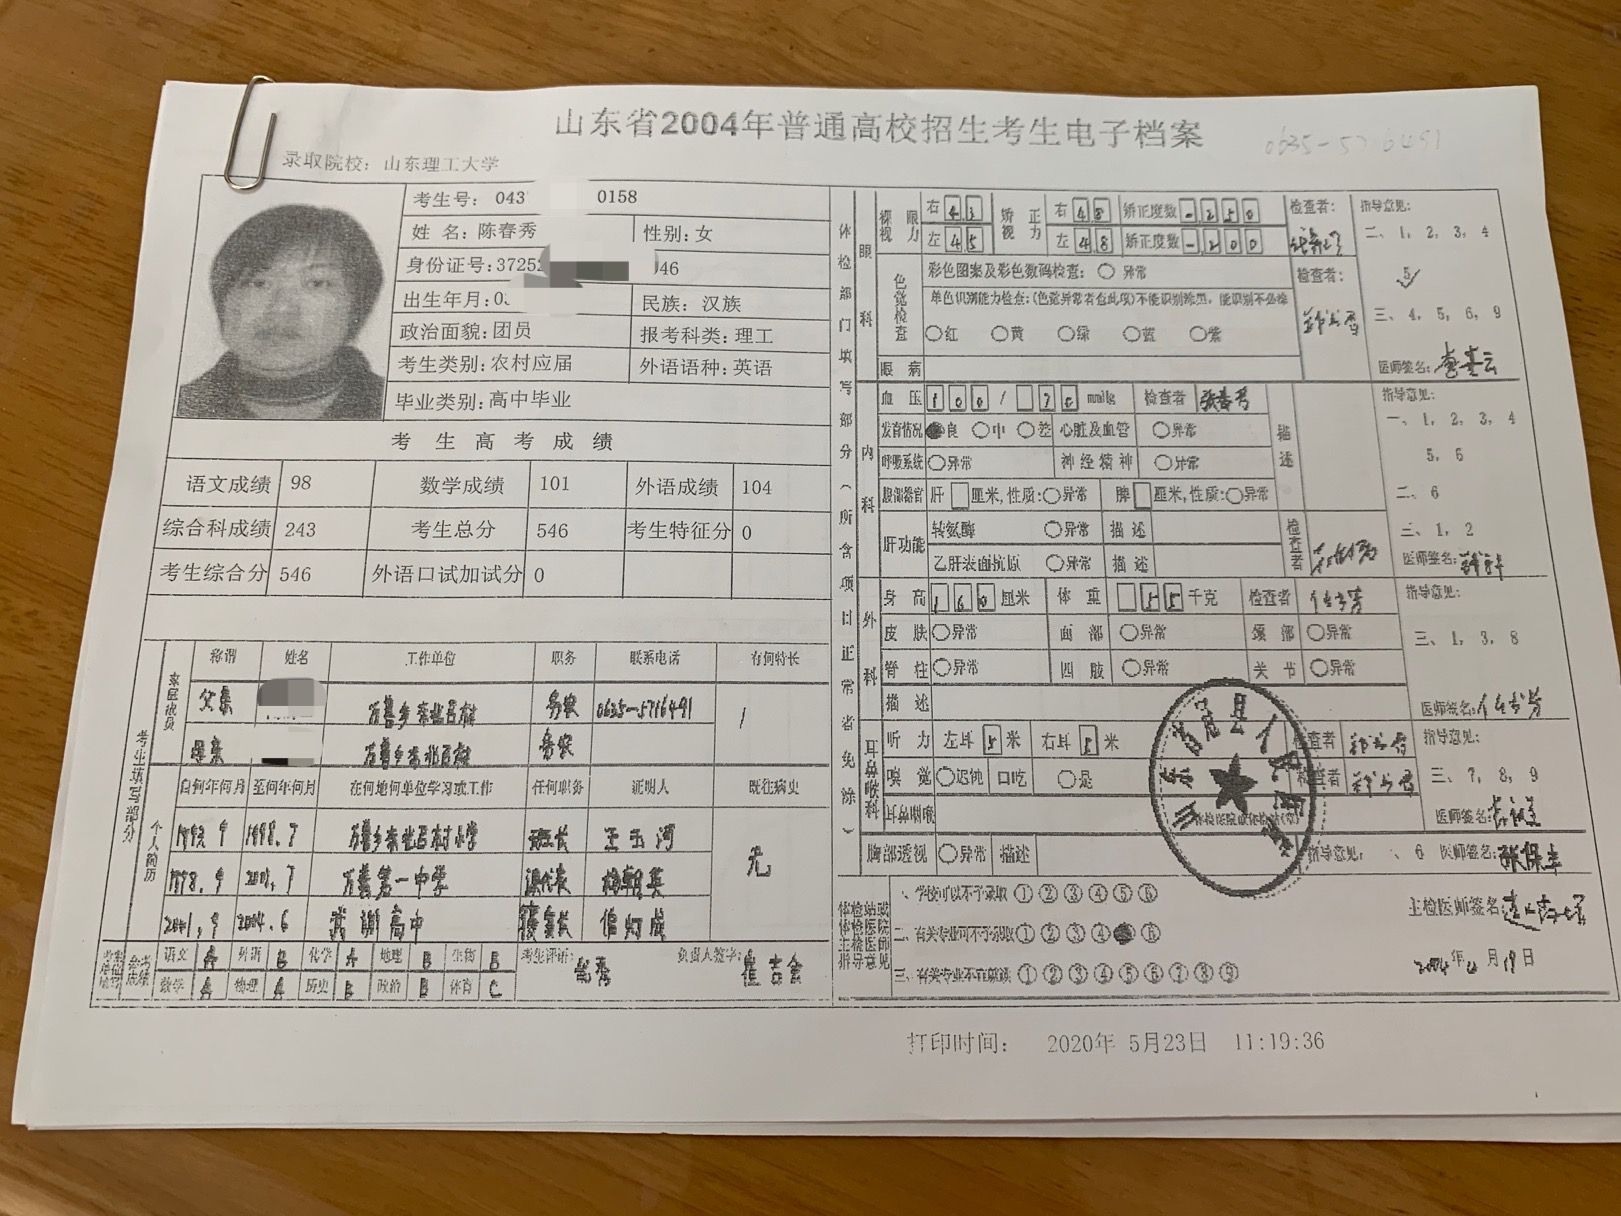 山东省2004年普通高校招生考生电子档案
0635-5716491
录取院校：山东理工大学
考生号：043 0158
姓 名：陈春秀 性别：女
身份证号：37252 046
出生年月：0 民族：汉族
政治面貌：团员 报考科类：理工
考生类别：农村应届 外语语种：英语
毕业类别：高中毕业
考 生 高 考 成 绩
语文成绩 98 数学成绩 101 外语成绩 104
综合科成绩 243 考生总分 546 考生特征分 0
考生综合分 546 外语口试加试分 0
考生填写部分
家庭成员
称谓 姓名 工作单位 职务 联系电话 有何特长
父亲 务农 0635-5716491 /
母亲 务农
个人简历
自何年何月 至何年何月 在何地何单位学习或工作 任何职务 证明人 既往病史
1998.7 班长 王玉河 无
1998.9 2001.7 万善第一中学 课代表
2001.9 2004.6 武训高中
语文 A 外语 B 化学 A 地理 B 生物 B 考生评语： 负责人签字：
数学 A 物理 A 历史 B 政治 B 体育 C
体检部门填写部分（所含项目正常者免涂）
眼科
裸眼视力 右 4.3 矫正视力 右 4.8 矫正度数 -250 检查者： 指导意见：
左 4.5 左 4.8 矫正度数 -200 二、1, 2, 3, 4
色觉检查 彩色图案及彩色数码检查：○ 异常 检查者： 5√
单色识别能力检查：(色觉异常者查此项)不能识别涂黑，能识别不必涂 三、4, 5, 6, 9
○红 ○黄 ○绿 ○蓝 ○紫
眼 病 医师签名：
内科
血 压 100/ 70 mmHg 检查者 指导意见：
发育情况 ●良 ○中 ○差 心脏及血管 ○异常 描述 一、1, 2, 3, 4
呼吸系统 ○异常 神经精神 ○异常 5, 6
腹部器官 肝 厘米,性质:○异常 脾 厘米,性质:○异常 二、6
肝功能 转氨酶 ○异常 描述 检查者 三、1, 2
乙肝表面抗原 ○异常 描述 医师签名：
外科
身 高 160 厘米 体 重 55 千克 检查者 指导意见：
皮 肤 ○异常 面 部 ○异常 颈 部 ○异常 三、1, 3, 8
脊 柱 ○异常 四 肢 ○异常 关 节 ○异常
描 述 医师签名：
耳鼻喉科
听 力 左耳 5 米 右耳 5 米 检查者 指导意见：
嗅 觉 ○迟钝 口吃 ○是 检查者 三、7, 8, 9
耳鼻咽喉 医师签名：
胸部透视 ○异常 描述 指导意见： 、6 医师签名：张保丰
体检站或体检医院主检医师指导意见
一、学校可以不予录取 ①②③④⑤⑥ 主检医师签名
二、有关专业可不予录取 ①②③④●⑥
三、有关专业不宜就读 ①②③④⑤⑥⑦⑧⑨ 2004年 月19日
打印时间： 2020年 5月23日 11:19:36